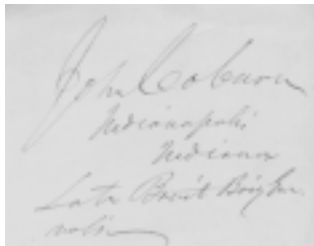 John Coburn
Indianapolis
Indiana
Late Brevt Brig Gen
vols